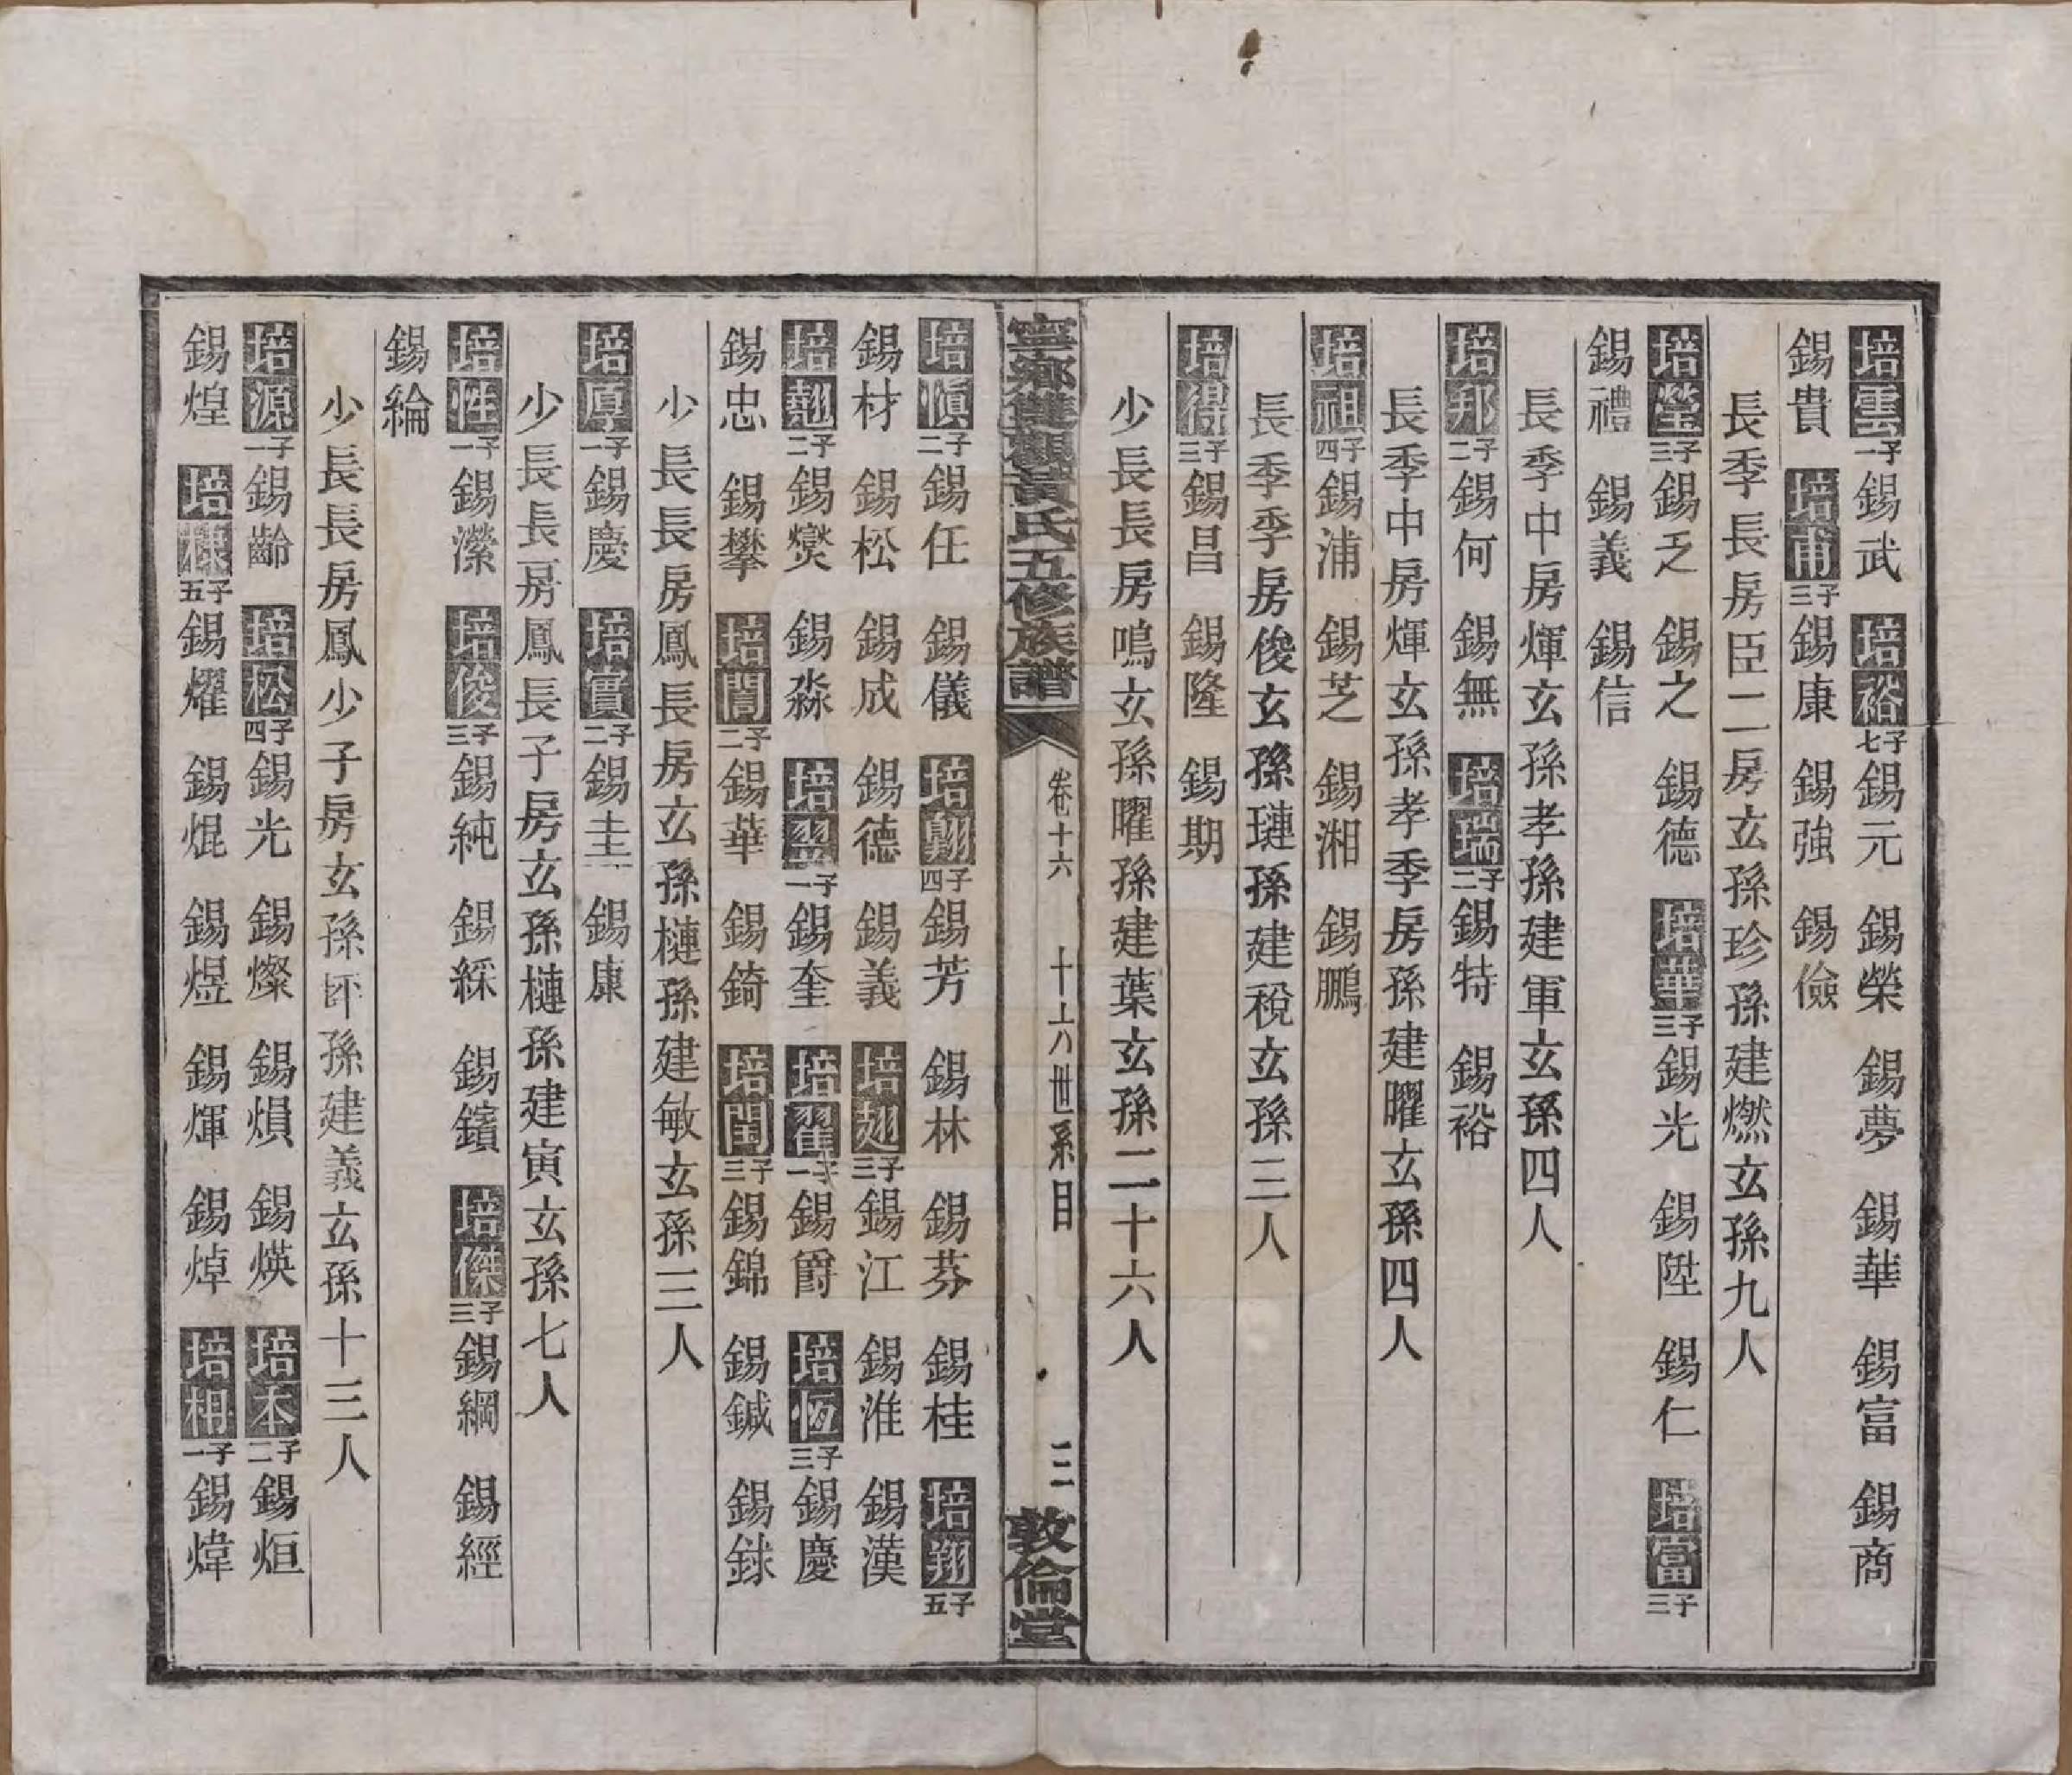 培雲子一錫武 培裕子七錫元 錫榮 錫夢 錫華 錫富 錫商
錫貴 培甫子三錫康 錫強 錫儉
長季長房臣二房玄孫珍孫建燃玄孫九人
培瑩子三錫乏 錫之 錫德 培華子三錫光 錫陞 錫仁 培富子三
錫禮 錫義 錫信
長季中房煇玄孫孝孫建軍玄孫四人
培邦子二錫何 錫無 培瑞子二錫特 錫裕
長季中房煇玄孫孝季房孫建曜玄孫四人
培祖子四錫浦 錫芝 錫湘 錫鵬
長季季房俊玄孫璉孫建稅玄孫三人
培得子三錫昌 錫隆 錫期
少長長房鳴玄孫曜孫建葉玄孫二十六人
寧鄉雙觀黃氏五修族譜 卷十六 十六世系目 三 敦倫堂
培慎子二錫任 錫儀 培翺子四錫芳 錫林 錫芬 錫桂 培翔子五
錫材 錫松 錫成 錫德 錫義 培翅子三錫江 錫淮 錫漢
培翹子二錫爕 錫淼 培翌子一錫奎 培翟子一錫爵 培恆子三錫慶
錫忠 錫攀 培誾子二錫華 錫錡 培閏子三錫錦 錫鍼 錫銾
少長長房鳳長房玄孫槤孫建敏玄孫三人
培厚子一錫慶 培實子二錫圭 錫康
少長長房鳳長子房玄孫槤孫建寅玄孫七人
培性子一錫瀠 培俊子三錫純 錫綵 錫鑌 培傑子三錫綱 錫經
錫綸
少長長房鳳少子房玄孫 孫建義玄孫十三人
培源子一錫齡 培松子四錫光 錫燦 錫熉 錫煐 培本子二錫烜
錫煌 培 子五錫燿 錫焜 錫煜 錫煇 錫焯 培柟子一錫煒